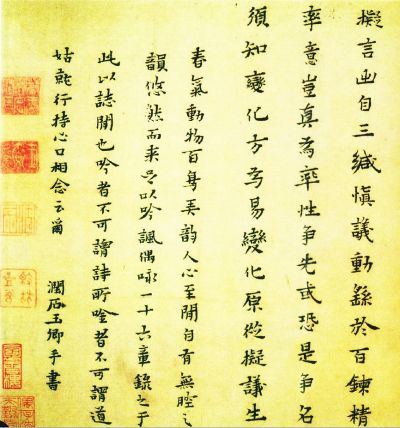 擬言出自三緘慎議動繇於百鍊精
率意豈真為率性爭先或恐是爭名
須知變化方為易變化原從擬議生
春氣動物百鳥弄韵人心至閒自有無腔之
韻悠然而来是以吟諷偶咏一十六章錄之于
此以誌閒也吟者不可謂詩所唫者不可謂道
姑就行持心口相念云爾
潤石玉卿手書